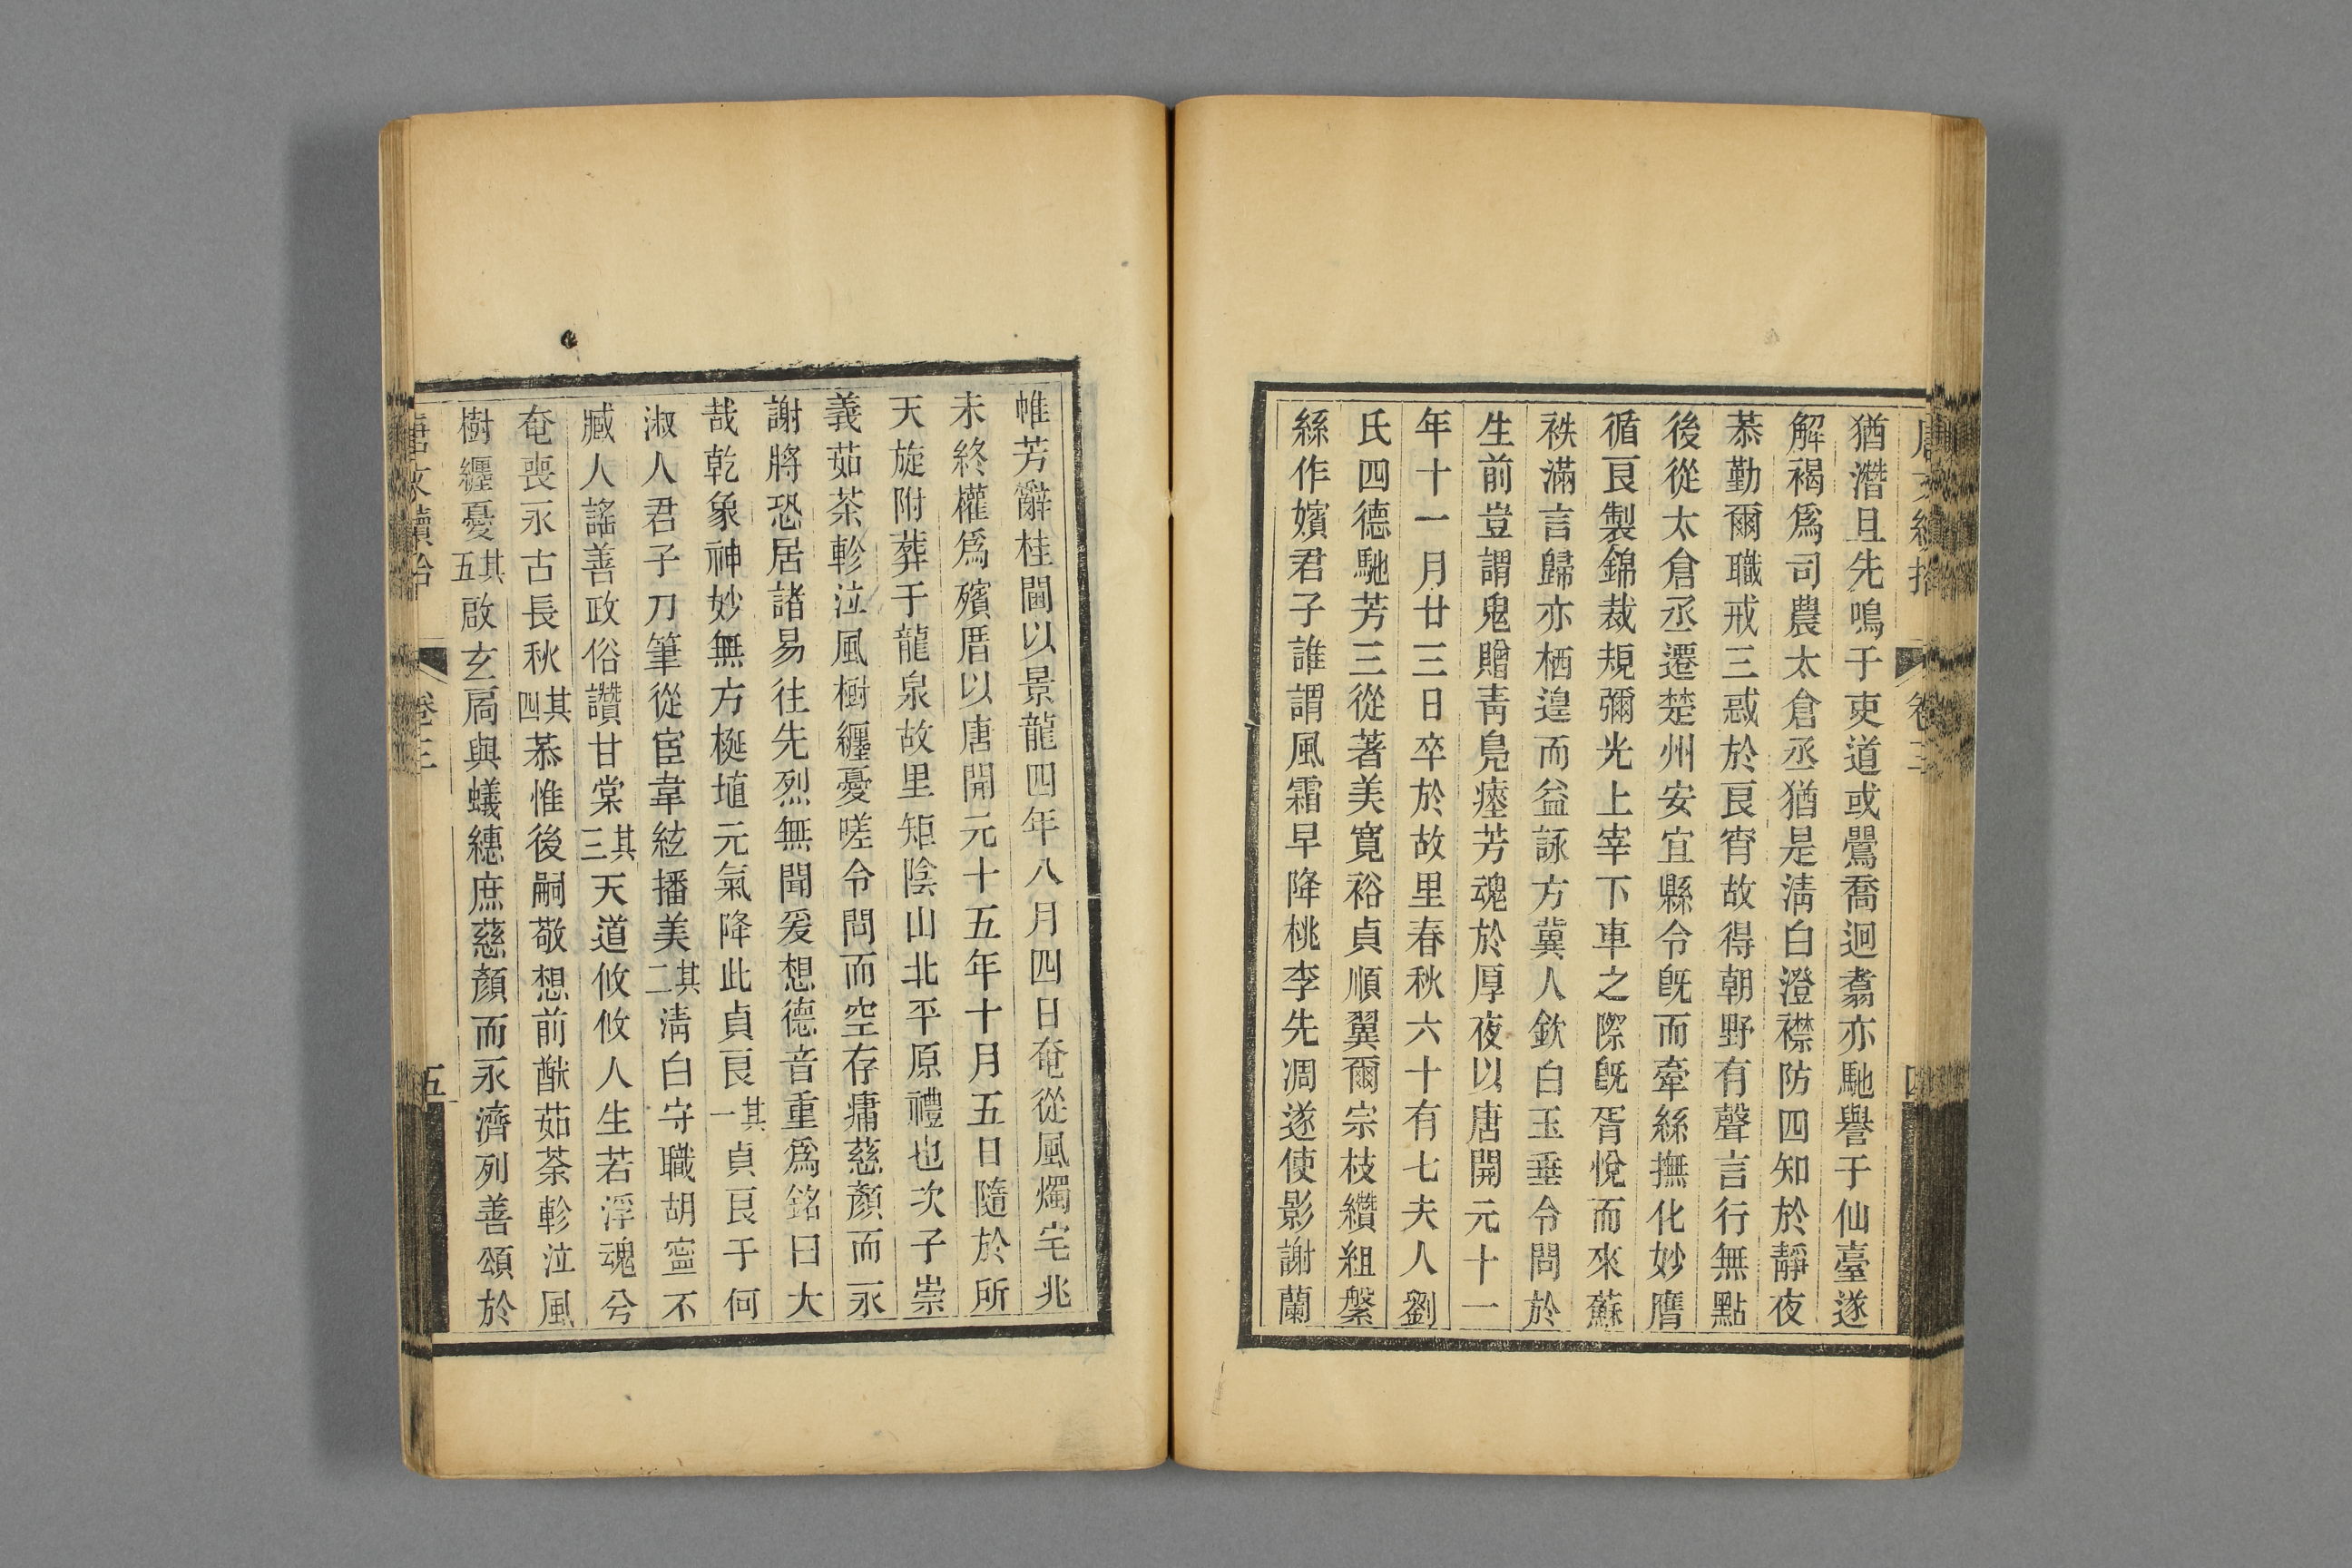 猶潛且先鳴于吏道或鸎喬迴翥亦馳譽于仙臺遂
解褐爲司農太倉丞猶是淸白澄襟防四知於靜夜
恭勤爾職戒三惑於良宵故得朝野有聲言行無點
後從太倉丞遷楚州安宜縣令旣而牽絲撫化妙膺
循良製錦裁規彌光上宰下車之際旣胥悅而來蘇
袟滿言歸亦栖遑而益詠方冀人欽白玉垂令問於
生前豈謂鬼贈靑鳧瘞芳魂於厚夜以唐開元十一
年十一月廿三日卒於故里春秋六十有七夫人劉
氏四德馳芳三從著美寬裕貞順翼爾宗枝纘組縏
絲作嬪君子誰謂風霜早降桃李先凋遂使影謝蘭
帷芳辭桂閫以景龍四年八月四日奄從風燭宅兆
未終權爲殯厝以唐開元十五年十月五日隨於所
天旋附葬于龍泉故里矩陰山北平原禮也次子崇
義茹荼軫泣風樹纏憂嗟令問而空存痛慈顏而永
謝將恐居諸易往先烈無聞爰想德音重爲銘曰大
哉乾象神妙無方梴埴元氣降此貞良其一貞良于何
淑人君子刀筆從宦韋絃播美其二淸白守職胡寍不
臧人謠善政俗讚甘棠其三天道攸攸人生若浮魂兮
奄喪永古長秋其四恭惟後嗣敬想前猷茹荼軫泣風
樹纏憂其五啟玄扃與蟻繐庶慈顏而永濟列善頌於
唐文續拾
卷三
五